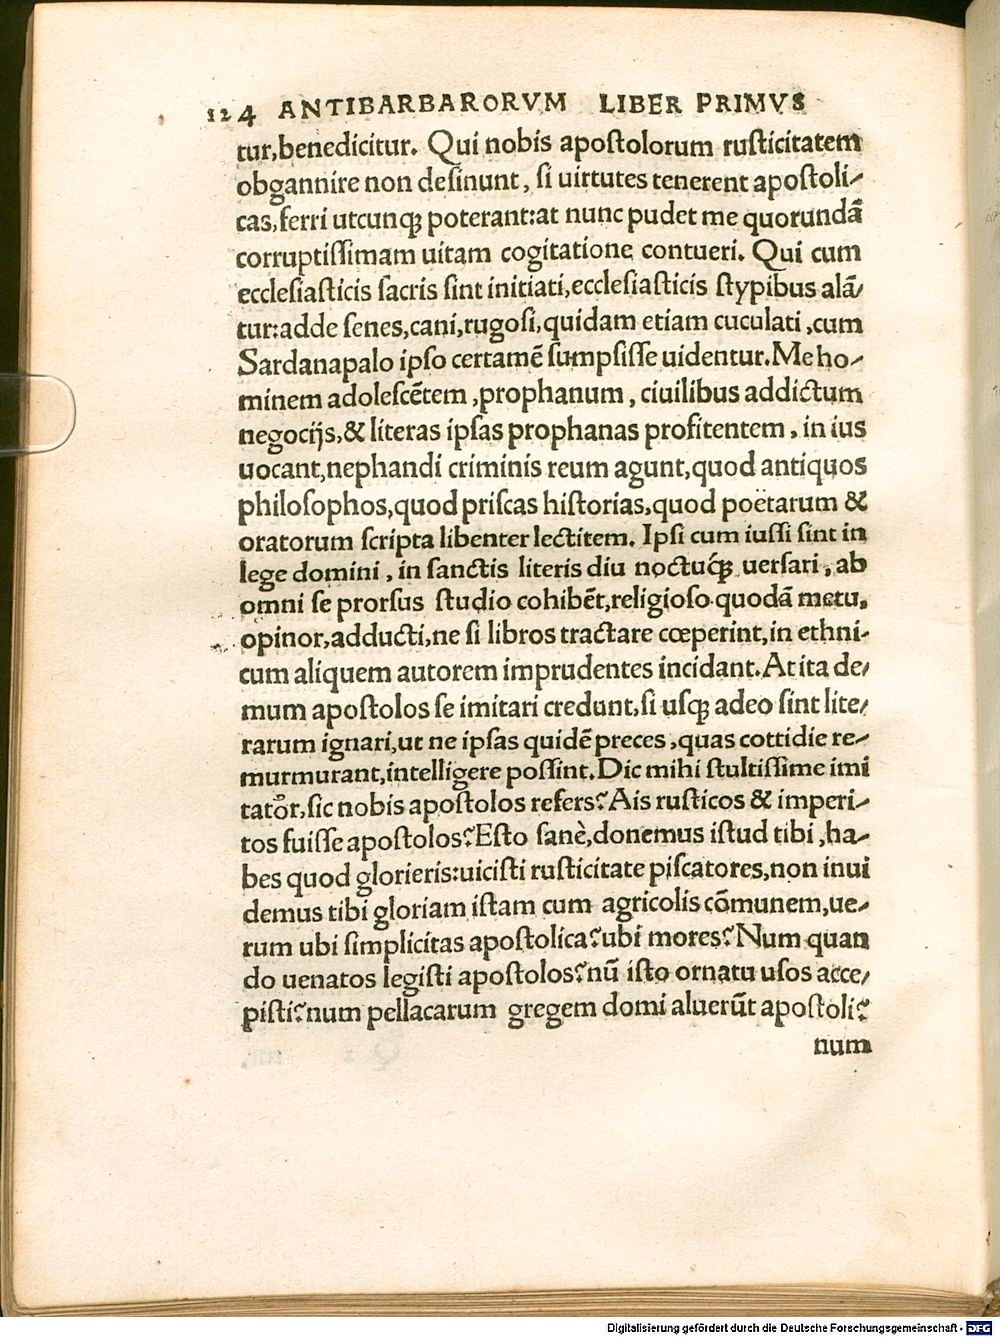 124 ANTIBARBARORVM LIBER PRIMVS
tur,benedicitur. Qui nobis apoſtolorum ruſticitatem
obgannire non deſinunt, ſi uirtutes tenerent apoſtoli-
cas,ferri utcunqꝫ poterant:at nunc pudet me quorundã
corruptiſſimam uitam cogitatione contueri. Qui cum
eccleſiaſticis ſacris ſint initiati,eccleſiaſticis ſtypibus alã/
tur:adde ſenes,cani,rugoſi,quidam etiam cuculati,cum
Sardanapalo ipſo certamẽ ſumpſiſſe uidentur.Me ho-
minem adoleſcẽtem,prophanum, ciuilibus addictum
negocijs,& literas ipſas prophanas profitentem, in ius
uocant,nephandi criminis reum agunt,quod antiquos
philoſophos,quod priſcas hiſtorias,quod poëtarum &
oratorum ſcripta libenter lectitem. Ipſi cum iuſſi ſint in
lege domini, in ſanctis literis diu noctuq́ꝫ uerſari, ab
omni ſe prorſus ſtudio cohibẽt,religioſo quodã metu,
opinor,adducti,ne ſi libros tractare cœperint,in ethni-
cum aliquem autorem imprudentes incidant.At ita de/
mum apoſtolos ſe imitari credunt,ſi uſqꝫ adeo ſint lite/
rarum ignari,ut ne ipſas quidẽ preces,quas cottidie re-
murmurant,intelligere poſſint.Dic mihi ſtultiſſime imi
tator,ſic nobis apoſtolos refers?Ais ruſticos & imperi-
tos fuiſſe apoſtolos?Eſto ſanè,donemus iſtud tibi,ha-
bes quod glorieris:uiciſti ruſticitate piſcatores,non inui
demus tibi gloriam iſtam cum agricolis cõmunem,ue-
rum ubi ſimplicitas apoſtolica?ubi mores?Num quan
do uenatos legiſti apoſtolos?nũ iſto ornatu uſos acce/
piſti?num pellacarum gregem domi aluerũt apoſtoli?
num
Digitalisierung gefördert durch die Deutsche Forschungsgemeinschaft - DFG